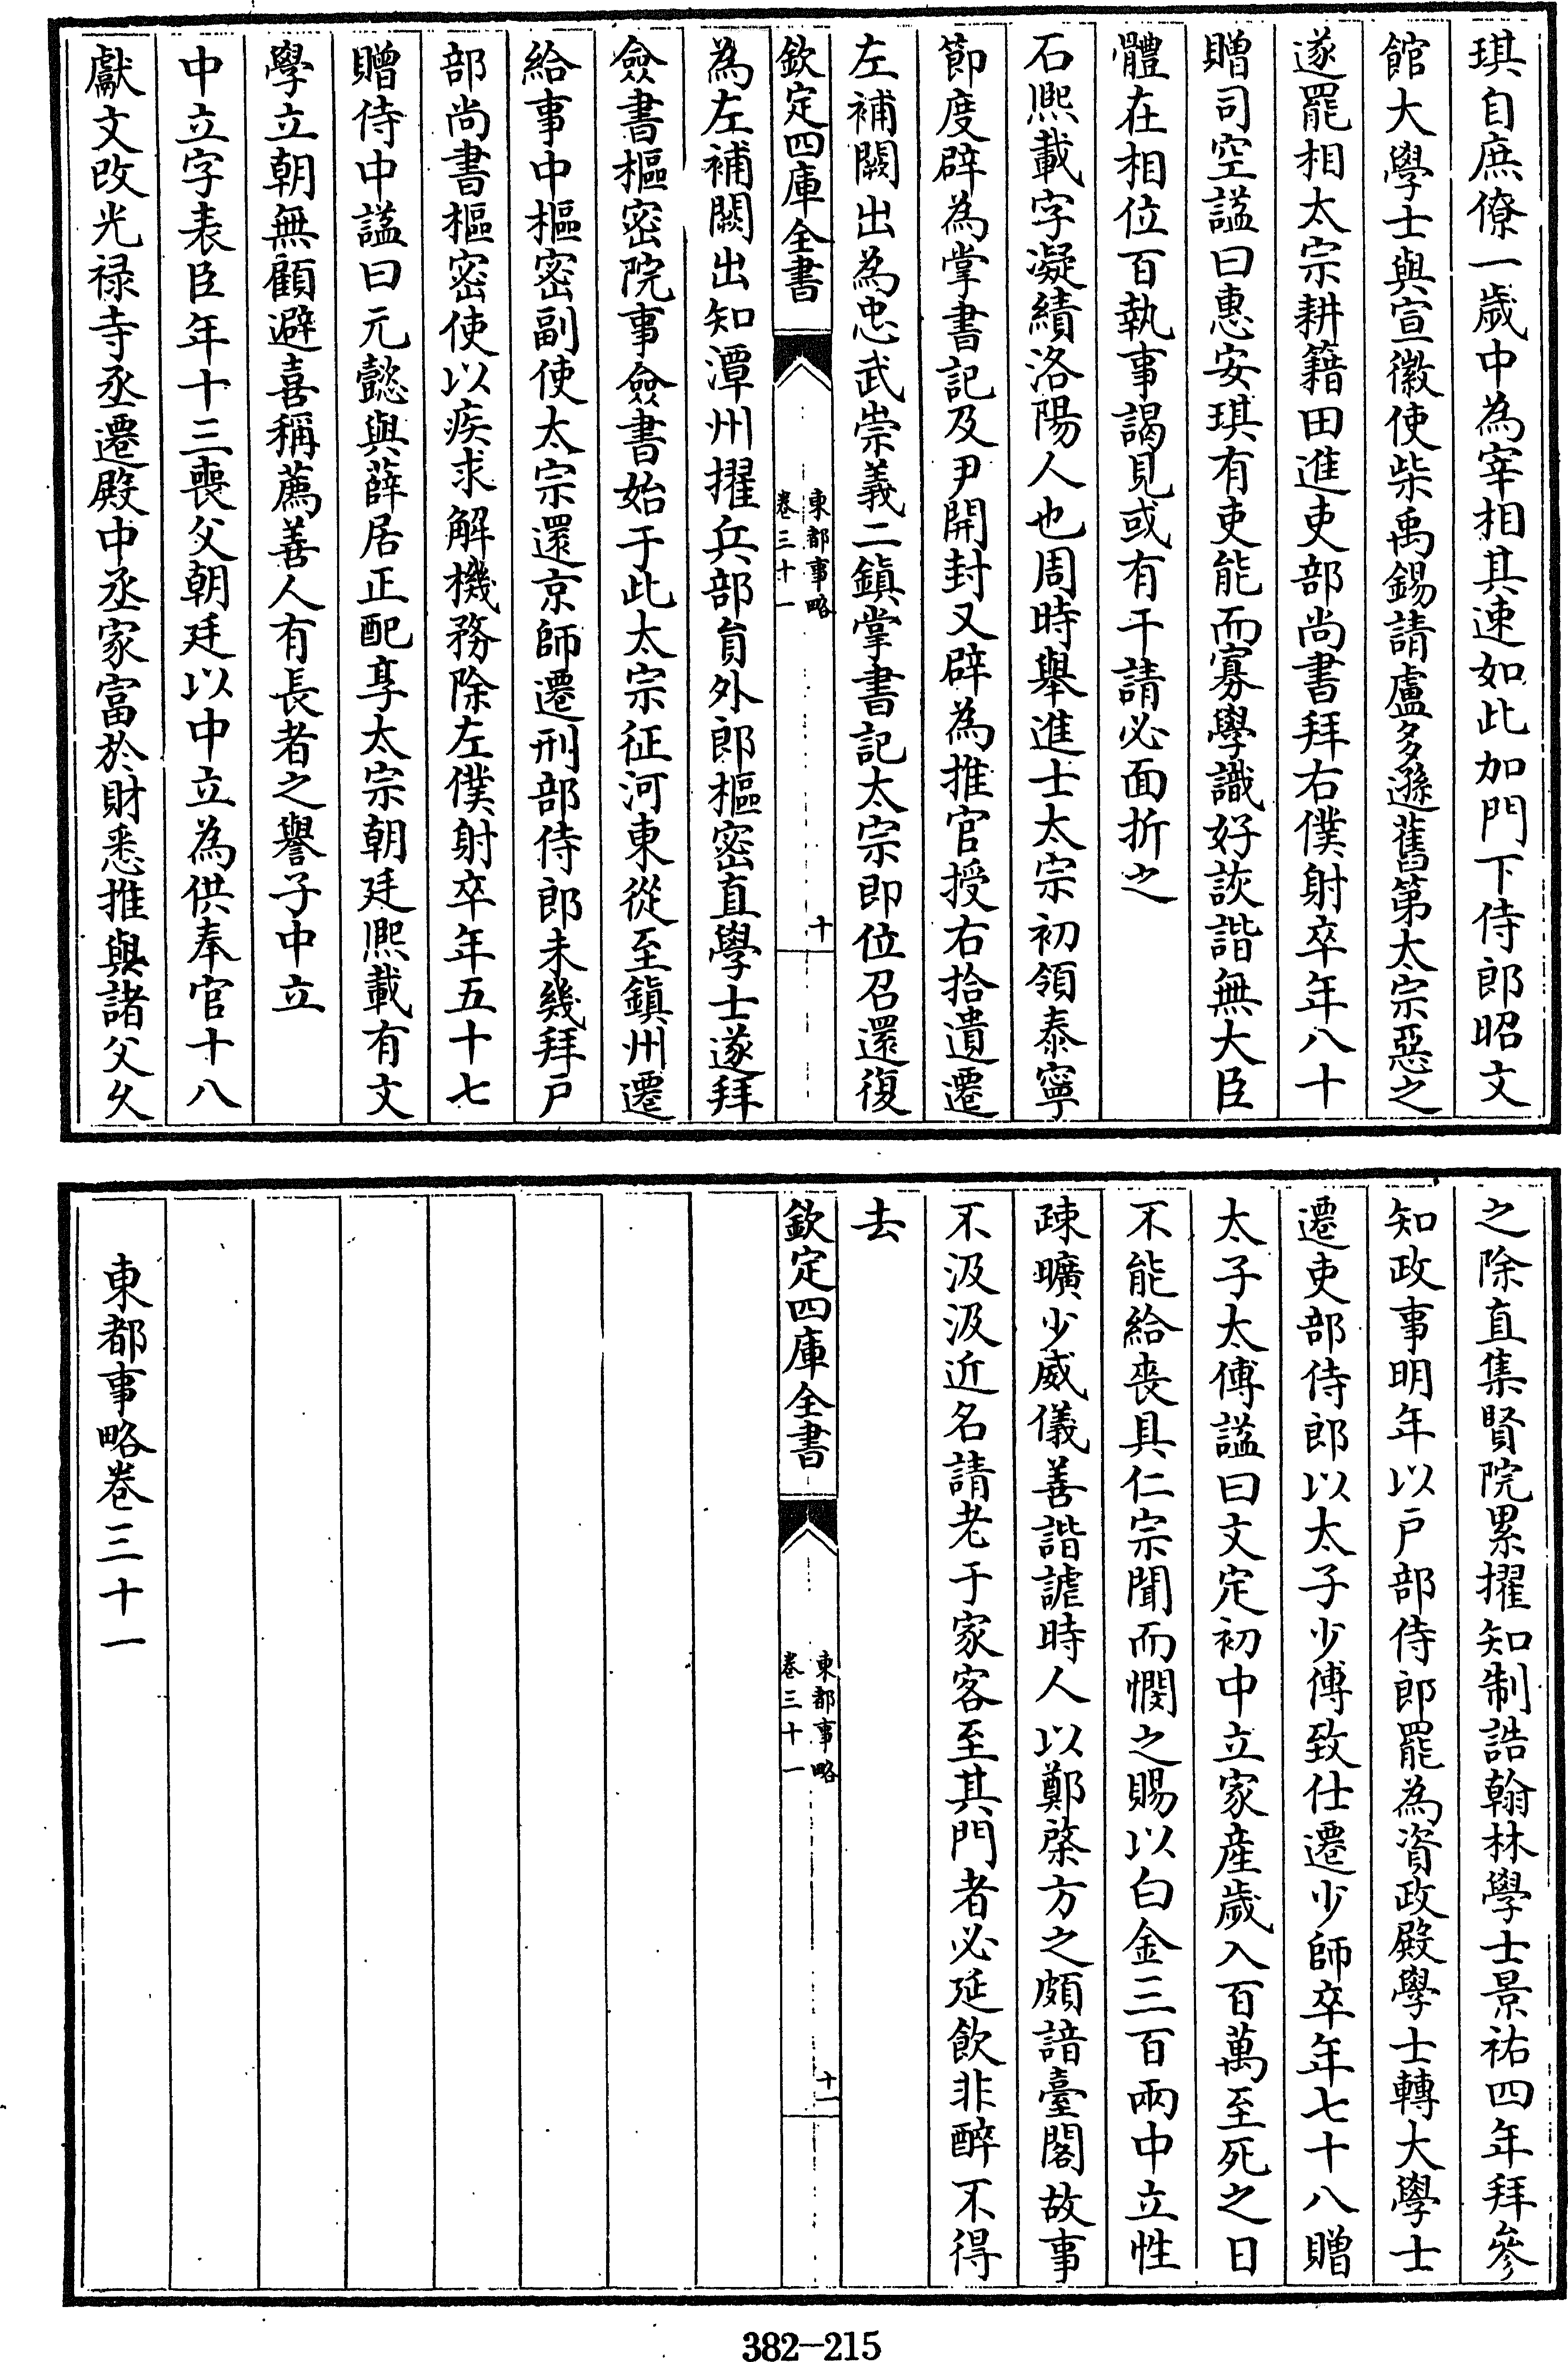 琪自庶僚一歲中為宰相其速如此加門下侍郎昭文
館大學士與宣徽使柴禹錫請盧多遜舊第太宗惡之
遂罷相太宗耕籍田進吏部尚書拜右僕射卒年八十
贈司空謚曰惠安琪有吏能而寡學識好詼諧無大臣
體在相位百執事謁見或有干請必面折之
石熙載字凝績洛陽人也周時舉進士太宗初領泰寧
節度辟為掌書記及尹開封又辟為推官授右拾遺遷
左補闕出為忠武崇義二鎮掌書記太宗即位召還復
欽定四庫全書
東都事略
卷三十一
十
為左補闕出知潭州擢兵部員外郎樞密直學士遂拜
僉書樞密院事僉書始于此太宗征河東從至鎮州遷
給事中樞密副使太宗還京師遷刑部侍郎未幾拜戶
部尚書樞密使以疾求解機務除左僕射卒年五十七
贈侍中謚曰元懿與薛居正配享太宗朝廷熙載有文
學立朝無顧避喜稱薦善人有長者之譽子中立
中立字表臣年十三喪父朝廷以中立為供奉官十八
獻文改光禄寺丞遷殿中丞家富於財悉推與諸父久
之除直集賢院累擢知制誥翰林學士景祐四年拜參
知政事明年以戶部侍郎罷為資政殿學士轉大學士
遷吏部侍郎以太子少傅致仕遷少師卒年七十八贈
太子太傅謚曰文定初中立家產歲入百萬至死之日
不能給喪具仁宗聞而憫之賜以白金三百兩中立性
疎曠少威儀善諧謔時人以鄭綮方之頗諳臺閣故事
不汲汲近名請老于家客至其門者必延飲非醉不得
去
欽定四庫全書
東都事略
卷三十一
十一
東都事略卷三十一
382-215